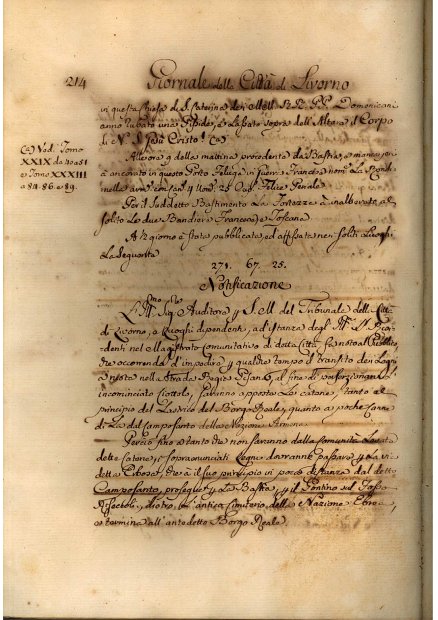 214 Giornale della Città di Livorno
in questa Chiesa di S. Caterina dei Mol. RR. PP. Domenicani
anno rubato una Pisside, e lasciato sopra dell'Altare il Corpo
di N. S. Gesù Cristo. (a)
(a) Ved. Tomo
XXIX da 40 a 51
e Tomo XXXIII
a 84. 86. e 89.
Allevore 9 della mattina procedente da Bastia, e
ancorato in questo Porto Feluga in guerra Francese
nella con Can. 4 Uom. 25 Cap. Felice
Per il suddetto Bastimento la Fortezza à inalberato al
solito le due Bandiere Francese e Toscana
A 12 giorno è stata pubblicata, ed affissata nei soliti Luoghi
la seguente
271. 67. 25.
Notificazione
L' Sig. Auditore del Tribunale della Città
di Livorno, e Luoghi dipendenti, ad istanza degli
nel Magistrato Comunitativo di detta Città, fa noto al Pubblico
che occorrendo d'impedire per qualche tempo il transito dei Legni
a ruota nella Strada Regia Pisana, al fine di
incominciato savanno apposte le catene, tanto al
principio del Lastrico del Borgo Reale, quanto a poche canne
di là dal camposanto della Nazione Armena.
Perciò fino a tanto che non saranno dalla Comunità Levate
dette catene, i sopraenunciati Legni dovranno passare per la via
detta Erbosa, che à il suo principio in poca distanza dal detto
Camposanto, prosegue per la Bastia, e per il Pontino sul Fosso
dietro l'antico Cimiterio della Nazione Ebrea
e termina all'antedetto Borgo Reale.